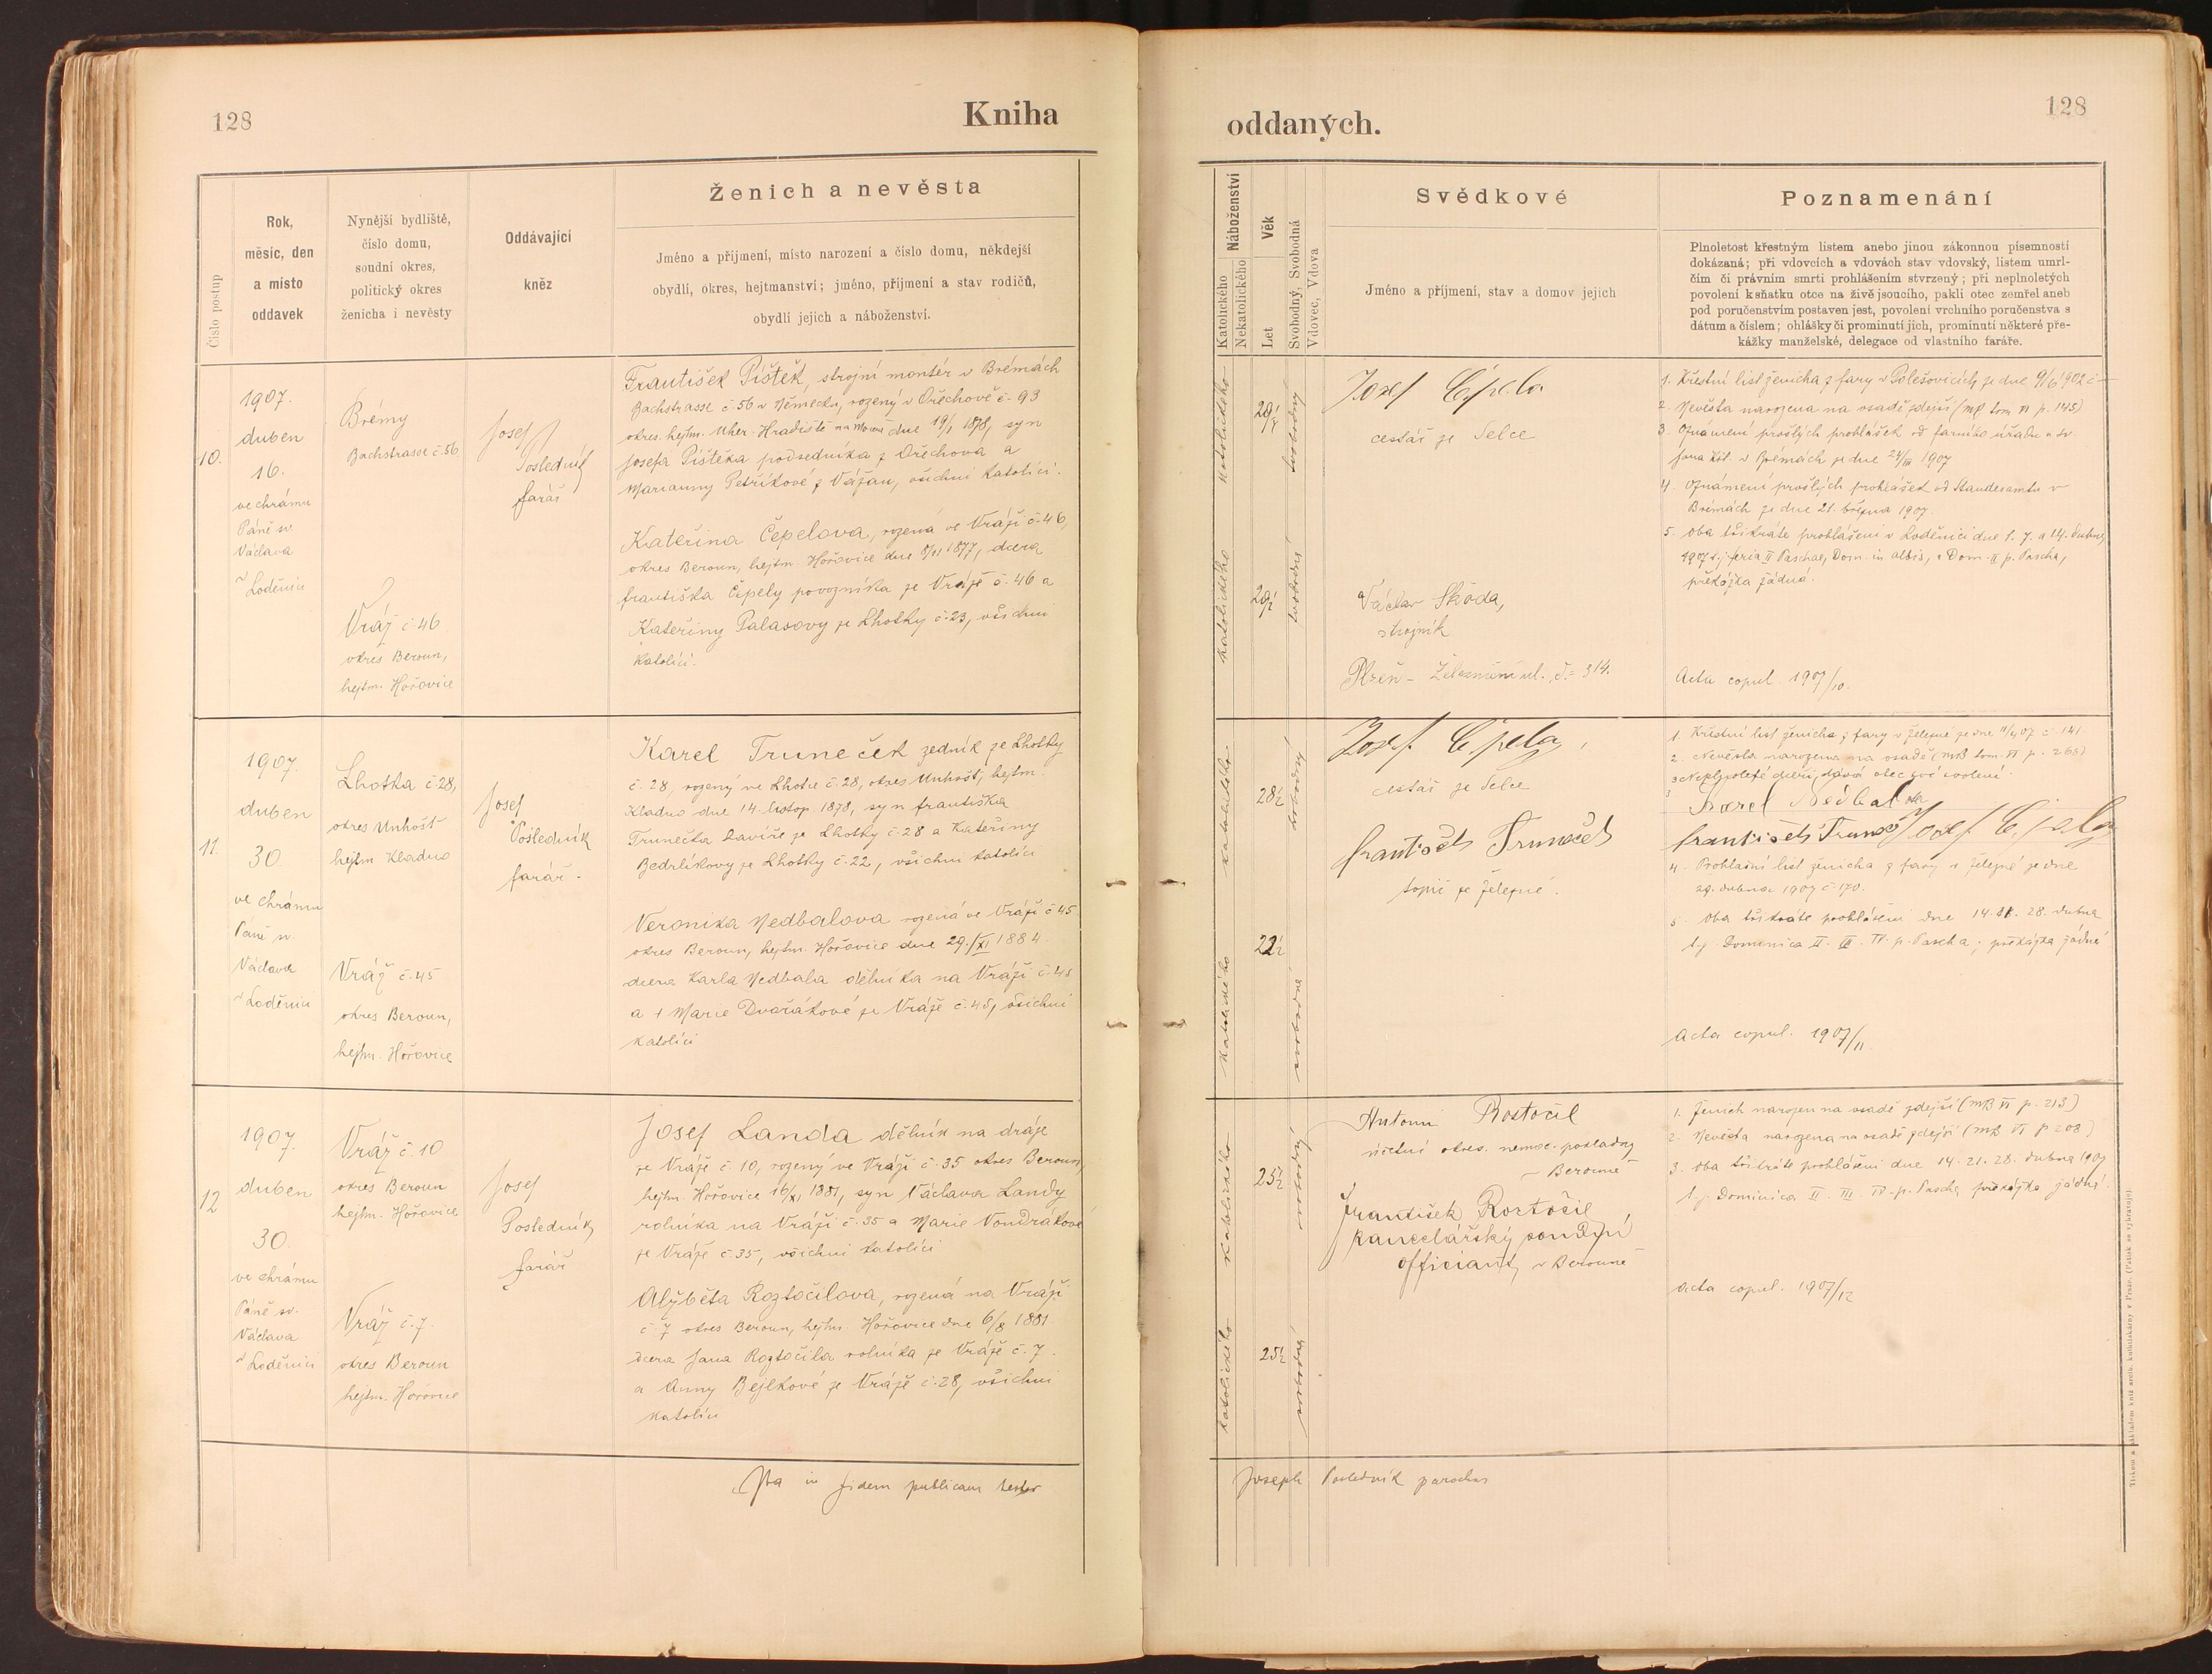 128
Kniha
oddaných.
128
Číslo postup
Rok,
měsíc, den
a místo
oddavek
Nynější bydliště,
číslo domu,
soudní okres,
politický okres
ženicha i nevěsty
Oddávající
kněz
Ženich a nevěsta
Jméno a příjmení, místo narození a číslo domu, někdejší
obydlí, okres, hejtmanství; jméno, příjmení a stav rodičů,
obydlí jejich a náboženství.
Náboženství
Katolického
Nekatolického
Věk
Let
Svobodný, Svobodná
Vdovec, Vdova
Svědkové
Jméno a příjmení, stav a domov jejich
Poznamenání
Plnoletost křestným listem anebo jinou zákonnou písemností
dokázaná; při vdovcích a vdovách stav vdovský, listem umrl-
čím či právním smrti prohlášením stvrzený; při neplnoletých
povolení k sňatku otce na živě jsoucího, pakli otec zemřel aneb
pod poručenstvím postaven jest, povolení vrchního poručenstva s
dátum a číslem; ohlášky či prominutí jich, prominutí některé pře-
kážky manželské, delegace od vlastního faráře.
10.
1907.
duben
16.
ve chrámu
Páně sv.
Václava
v Loděnici
Brémy
Bachstrasse č. 56
Vráž č. 46
okres Beroun,
hejtm. Hořovice
Josef
Posledník
farář
František Píštěk, strojní montér v Brémách
Bachstrasse č. 56 v Německu, rozený v Ořechově č. 93
okres. hejtm. Uher. Hradiště na Moravě dne 19/1 1878, syn
Josefa Píštěka podsedníka z Ořechova a
Marianny Petříkové z Vážan, všichni katolíci.
Kateřina Čepelova, rozená ve Vráži č. 46,
okres Beroun, hejtm. Hořovice dne 8/XI 1877, dcera
františka Čepely povozníka ze Vráže č. 46 a
Kateřiny Palasovy ze Lhotky č. 23, všichni
katolíci.
katolického
29 1/4
svobodný
katolického
29 1/2
svobodná
Josef Čepela
cestář ze Selce
Václav Škoda,
strojník
Plzeň - Železniční ul. č. 314.
1. Křestní list ženicha z fary v Polešovicích ze dne 9/6 1902 č -
2. Nevěsta narozena na osadě zdejší (MB tom VI p. 145)
3. Oznámení prošlých prohlášek od farního úřadu u sv.
Jana Křt. v Brémách ze dne 24/III 1907
4. Oznámení prošlých prohlášek od Standesamtu v
Brémách ze dne 21. března 1907.
5. Oba třikráte prohlášeni v Loděnici dne 1. 7. a 14. dubna
1907 t.j. feria II Paschae, Dom. in albis, a Dom. II p. Pascha,
překážka žádná.
Acta copul. 1907/10.
11.
1907.
duben
30.
ve chrámu
Páně sv.
Václava
v Loděnici
Lhotka č 28,
okres Unhošť
hejtm Kladno
Vráž č. 45
okres Beroun,
hejtm. Hořovice
Josef
Posledník
farář.
Karel Truneček zedník ze Lhotky
č. 28, rozený ve Lhotce č. 28, okres Unhošť, hejtm.
Kladno dne 14. listop. 1878, syn františka
Trunečka havíře ze Lhotky č. 28 a Kateřiny
Bedrlíkovy ze Lhotky č. 22, všichni katolíci
Veronika Nedbalova rozená ve Vráži č 45
okres Beroun, hejtm. Hořovice dne 29./XI 1884.
dcera Karla Nedbala dělníka na Vráži č. 45
a + Marie Dvořákové ze Vráže č. 45, všichni
katolíci
katolického
28 1/2
svobodný
katolického
22 1/2
svobodná
Josef Čepela,
cestář ze Selce
františek Truneček
topič ze Železné.
1. Křestní list ženicha z fary v Železné ze dne 11/4 07 č. 141.
2. Nevěsta narozena na osadě (MB tom. VI p. 268)
3 Neplnoleté dceři, dává otec své svolení.
Karel Nedbal otec
františek Truneček Josef Čepela
4. Prohlašní list ženicha z fary v Železné ze dne
29. dubna 1907 č 170.
5. Oba třikráte prohlášeni dne 14. 21. 28. dubna
t.j. Domenica II. III. IV. p. Pascha; překážka žádná
Acta copul. 1907/11.
12
1907.
duben
30.
ve chrámu
Páně sv.
Václava
v Loděnici
Vráž č. 10
okres Beroun
hejtm. Hořovice
Vráž č. 7.
okres Beroun
hejtm. Hořovice
Josef
Posledník
farář
Josef Landa dělník na dráze
ze Vráže č. 10, rozený ve Vráži č. 35 okres Beroun,
hejtm. Hořovice 16/XI 1881, syn Václava Landy
rolníka na Vráži č. 35 a Marie Vondrákové
ze Vráže č 35, všichni katolíci
Alžběta Roztočilova, rozená na Vráži
č 7 okres Beroun, hejtm Hořovice dne 6/8 1881.
dcera Jana Roztočila rolníka ze Vráže č. 7.
a Anny Bejlkové ze Vráže č. 28, všichni
katolíci
katolického
25 1/2
svobodný
katolického
25 1/2
svobodná
Antonín Rostočil
účetní okres. nemoc. pokladny
v Berouně
František Roztočil
kancelářský soudní
officiant, v Berouně
1. Ženich narozen na osadě zdejší (MB VI p. 213)
2. Nevěsta narozena na osadě zdejší (MB VI p 208)
3. Oba třikráte prohlášeni dne 14. 21. 28. dubna 1907
t.j. Dominica II. III. IV. p. Pascha překážka žádná.
Acta copul. 1907/12
Ita in fidem publicam testor
Joseph Posledník parochus